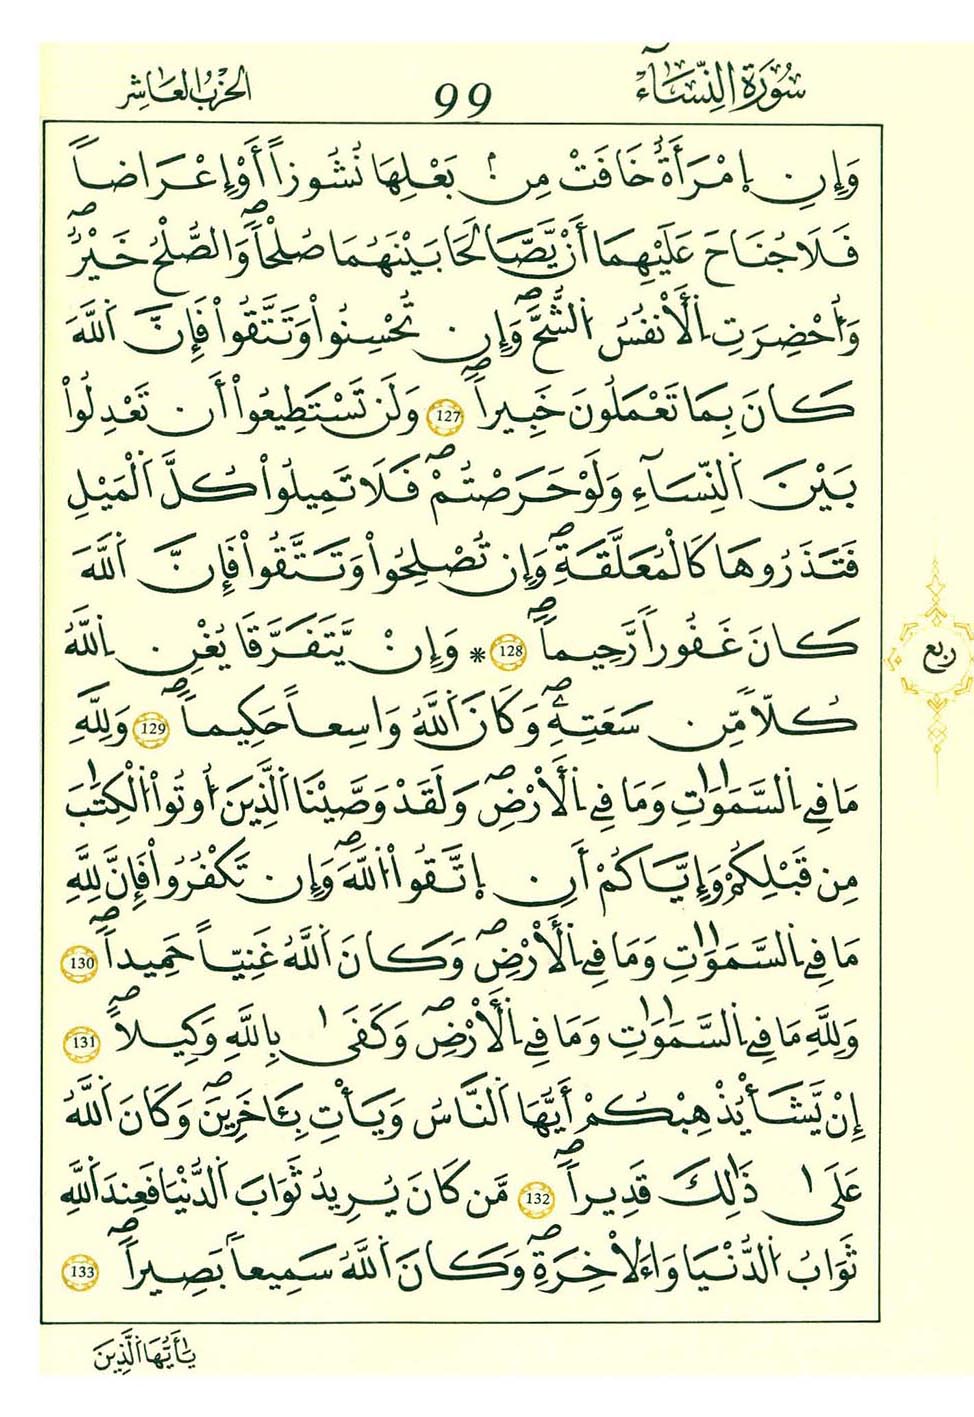 سُورَةُ النِّسَآءِ
99
الحِزْبُ العَاشِر
وَإِنِ اِ۪مْرَأَةٌ خَافَتْ مِنۢ بَعْلِهَا نُشُوزاً أَوْ إِعْرَاضاً
فَلَا جُنَاحَ عَلَيْهِمَا أَنْ يَّصَّالَحَا بَيْنَهُمَا صُلْحاًۖ وَالصُّلْحُ خَيْرٌۖ
وَأُحْضِرَتِ اِ۬لْأَنفُسُ اُ۬لشُّحَّۖ وَإِن تُحْسِنُواْ وَتَتَّقُواْ فَإِنَّ اَ۬للَّهَ
كَانَ بِمَا تَعْمَلُونَ خَبِيراًۖ 127 وَلَن تَسْتَطِيعُواْ أَن تَعْدِلُواْ
بَيْنَ اَ۬لنِّسَآءِ وَلَوْ حَرَصْتُمْۖ فَلَا تَمِيلُواْ كُلَّ اَ۬لْمَيْلِ
فَتَذَرُوهَا كَالْمُعَلَّقَةِۖ وَإِن تُصْلِحُواْ وَتَتَّقُواْ فَإِنَّ اَ۬للَّهَ
كَانَ غَفُوراً رَّحِيماًۖ 128 * وَإِنْ يَّتَفَرَّقَا يُغْنِ اِ۬للَّهُ
كُلّاً مِّن سَعَتِهِۦۖ وَكَانَ اَ۬للَّهُ وَاسِعاً حَكِيماًۖ 129 وَلِلَّهِ
مَا فِے اِ۬لسَّمَٰوَٰتِ وَمَا فِے اِ۬لْأَرْضِۖ وَلَقَدْ وَصَّيْنَا اَ۬لَّذِينَ أُوتُواْ اُ۬لْكِتَٰبَ
مِن قَبْلِكُمْ وَإِيَّاكُمْ أَنِ اِ۪تَّقُواْ اُ۬للَّهَۖ وَإِن تَكْفُرُواْ فَإِنَّ لِلَّهِ
مَا فِے اِ۬لسَّمَٰوَٰتِ وَمَا فِے اِ۬لْأَرْضِۖ وَكَانَ اَ۬للَّهُ غَنِيّاً حَمِيداًۖ 130
وَلِلَّهِ مَا فِے اِ۬لسَّمَٰوَٰتِ وَمَا فِے اِ۬لْأَرْضِۖ وَكَفَىٰ بِاللَّهِ وَكِيلاًۖ 131
إِنْ يَّشَأْ يُذْهِبْكُمْ أَيُّهَا اَ۬لنَّاسُ وَيَأْتِ بِـَٔاخَرِينَۖ وَكَانَ اَ۬للَّهُ
عَلَىٰ ذَٰلِكَ قَدِيراًۖ 132 مَّن كَانَ يُرِيدُ ثَوَابَ اَ۬لدُّنْيَا فَعِندَ اَ۬للَّهِ
ثَوَابُ اُ۬لدُّنْيَا وَالَاخِرَةِۖ وَكَانَ اَ۬للَّهُ سَمِيعاً بَصِيراًۖ 133
ربع
يَٰأَيُّهَا اَ۬لَّذِينَ